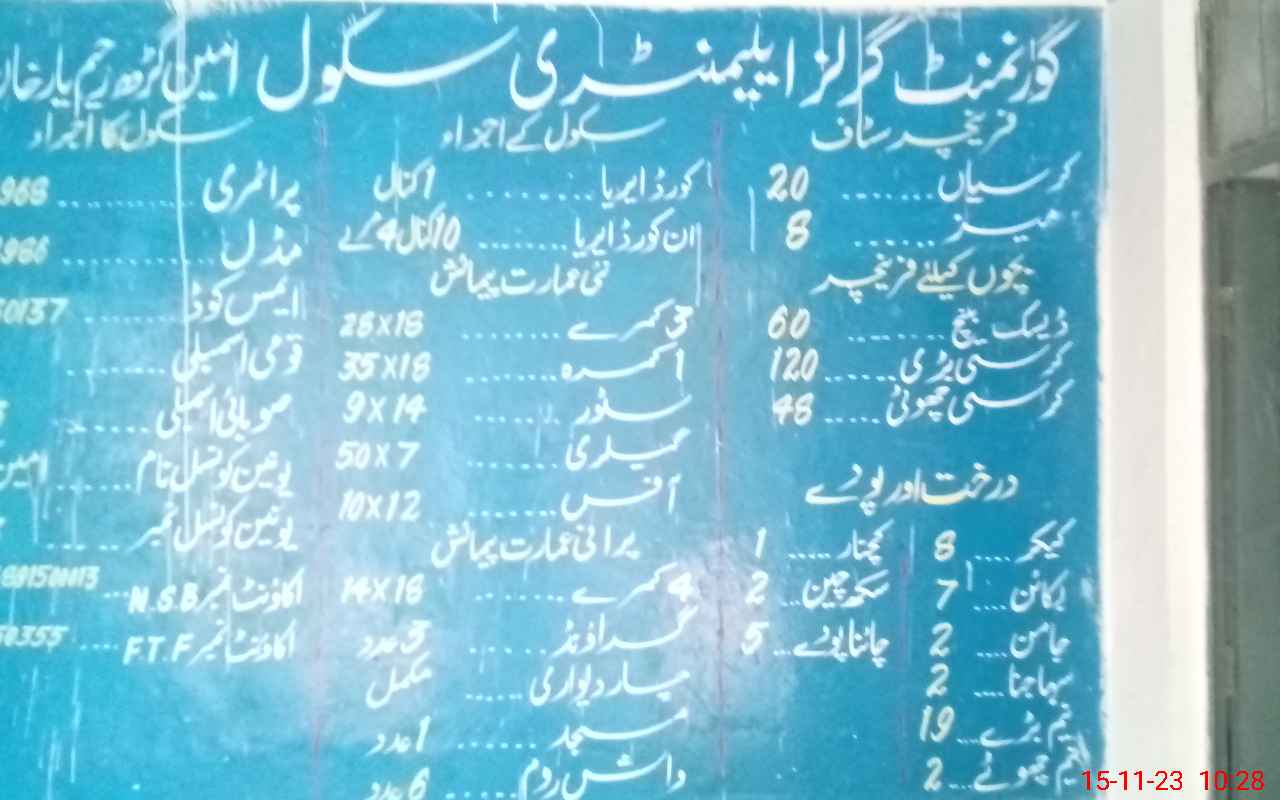 گورنمنٹ گرلز ایلیمنٹری سکول امین گڑھ رحیم یار خان
فرنیچر سٹاف
کرسیاں ...... 20
میز ...... 8
بچوں کیلئے فرنیچر
ڈیسک بینچ ...... 60
کرسی بڑی ...... 120
کرسی چھوٹی ...... 48
درخت اور پودے
کیکر .... 8
بکائن .... 7
جامن .... 2
سہاجنا .... 2
نیم بڑے .... 19
نیم چھوٹے ... 2
کچنار ..... 1
سکھ چین ... 2
چائنا پودے ... 5
سکول کے اجزاء
کورڈ ایریا ........ 1 کنال
ان کورڈ ایریا ........ 10 کنال 4 مرلے
نئی عمارت پیمائش
3 کمرے ........ 28x18
1 کمرہ ........ 35x18
سٹور ........ 9x14
گیلری ........ 50x7
آفس ........ 10x12
پرانی عمارت پیمائش
4 کمرے ........ 14x18
گراؤنڈ ...... 3 عدد
چار دیواری ...... مکمل
مسجد ...... 1 عدد
واش روم ...... 6 عدد
سکول کا اجراء
پرائمری ........ 968
مڈل ........ 986
ایمس کوڈ ........ 0137
قومی اسمبلی ........
صوبائی اسمبلی ........
یونین کونسل نام ...... امین
یونین کونسل نمبر ......
اکاؤنٹ نمبر N.S.B ...
اکاؤنٹ نمبر F.T.F .... 0355
15-11-23 10:28